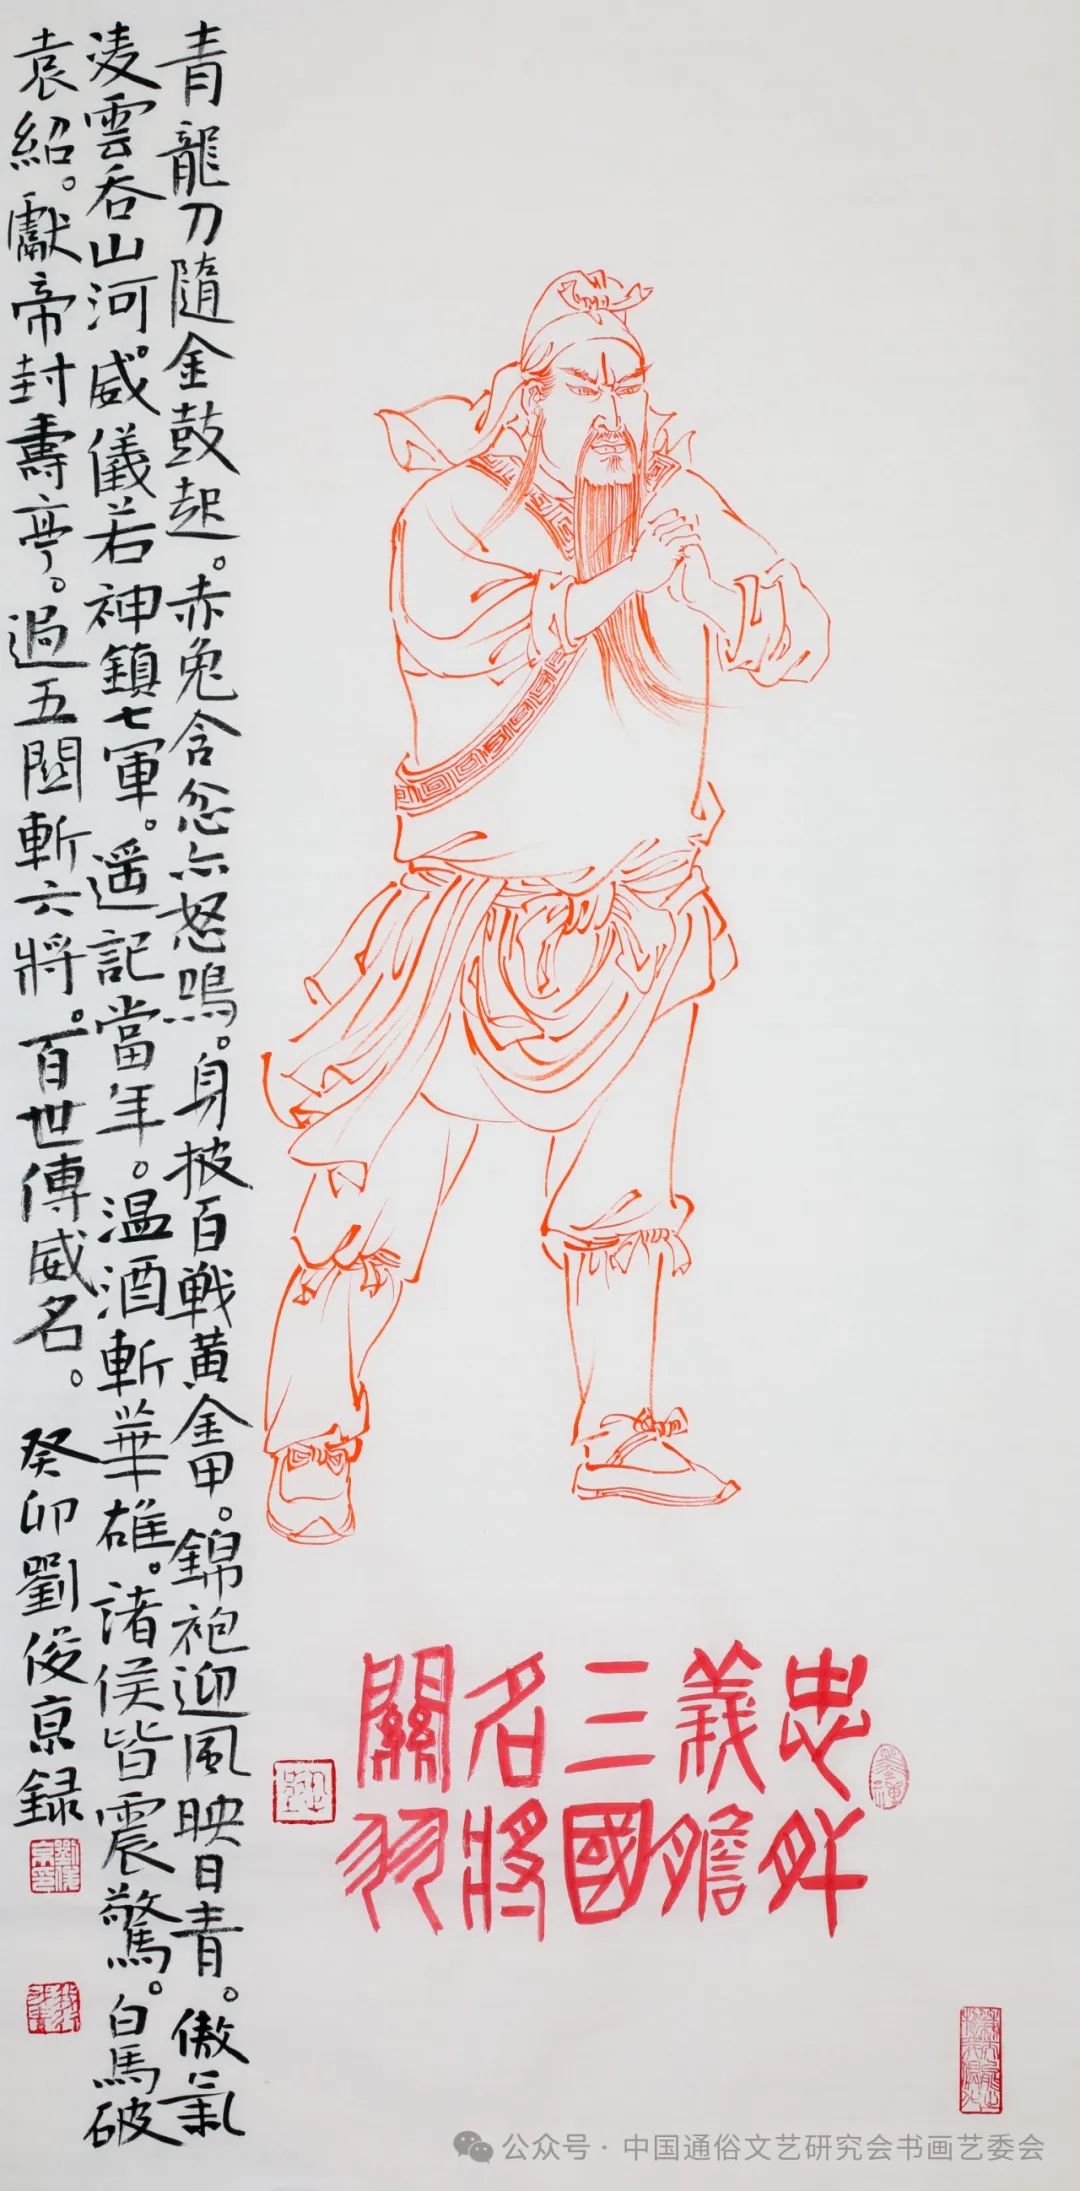 忠肝
義膽
三國
名將
關羽
青龍刀隨金鼓起。赤兔含忿亦怒鳴。身披百戦黄金甲。錦袍迎風映日青。傲氣
淩雲吞山河。威儀若神鎮七軍。遥記當年。温酒斬華雄。諸侯皆震驚。白馬破
袁紹。獻帝封壽亭。過五関斬六將。百世傳威名。癸卯劉俊京録
公众号 · 中国通俗文艺研究会书画艺委会